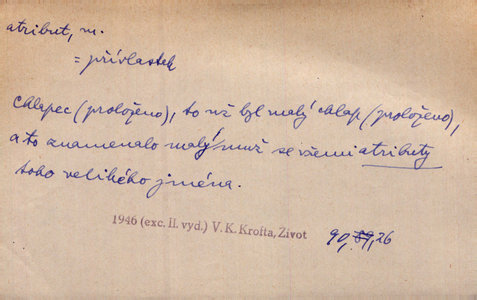 atribut, m.
= přívlastek
Chlapec (proloženo), to už byl malý chlap (proloženo),
a to znamenalo malý muž se všemi atributy
toho velikého jména.
1946 (exc. II. vyd.) V. K. Krofta, Život
90, 89, 26